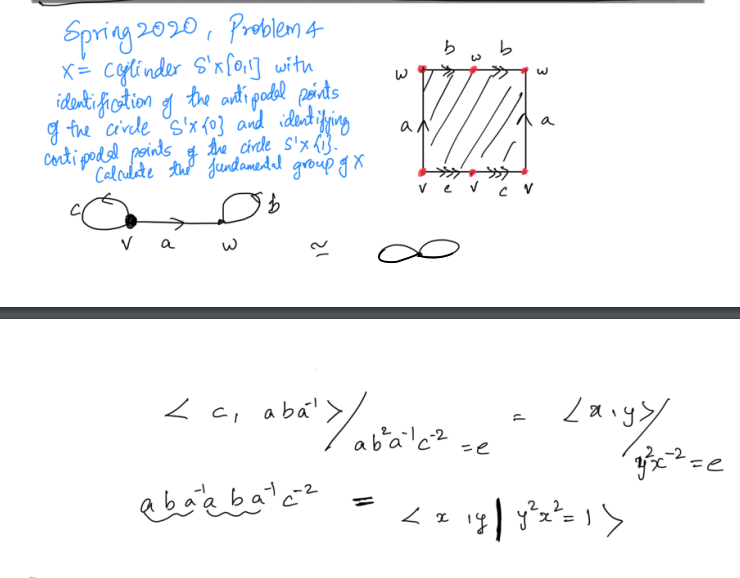 Spring 2020, Problem 4
X = Cylinder S'x[0,1] with
identification of the antipodal points
of the circle S'x{0} and identifying
antipodal points of the circle S'x{1}.
Calculate the fundamental group of X
b w b
w w
a a
v c v c v
c b
v a w ≃
< c, aba⁻¹ > / ab²a⁻¹c⁻² = e = <x,y> / y²x⁻² = e
aba⁻¹aba⁻¹c⁻² = < x, y | y²x² = 1 >